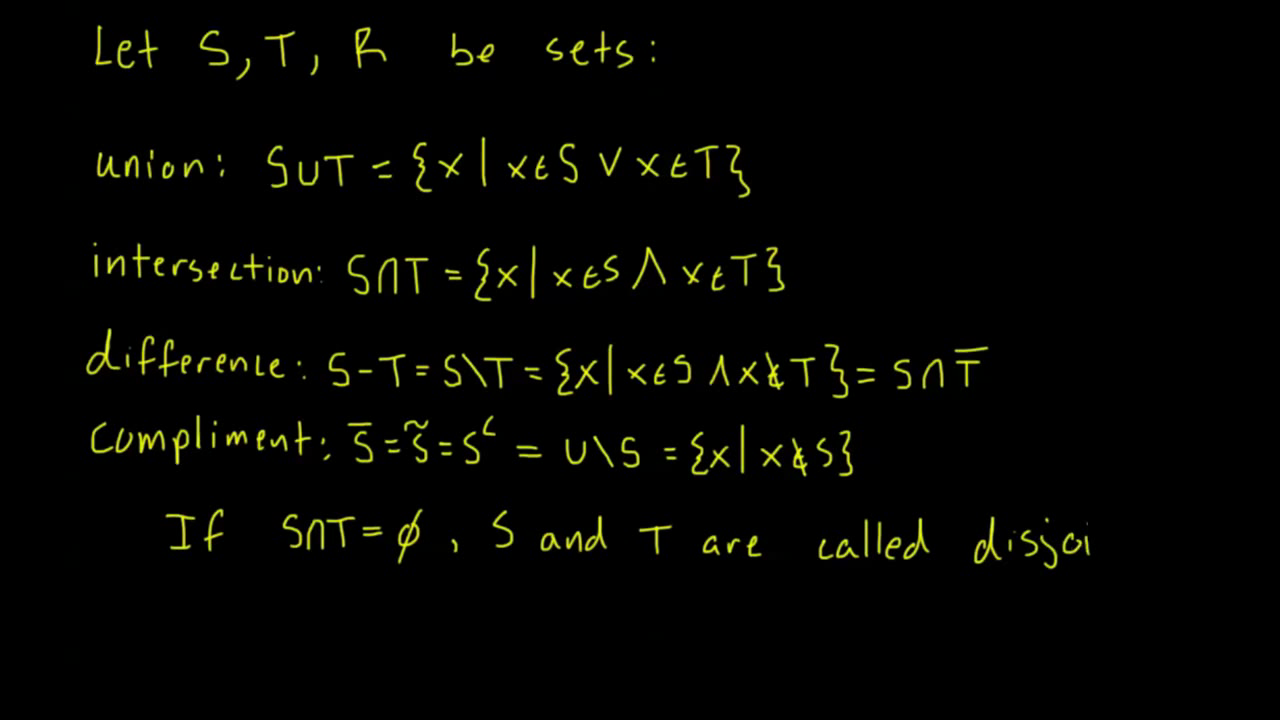 Let S, T, R be sets:
union: S∪T = {x | x∈S ∨ x∈T}
intersection: S∩T = {x | x∈S ∧ x∈T}
difference: S-T = S\T = {x | x∈S ∧ x∉T} = S∩T̅
Compliment: S̅ = S̃ = Sᶜ = U\S = {x | x∉S}
If S∩T = ∅, S and T are called disjoi